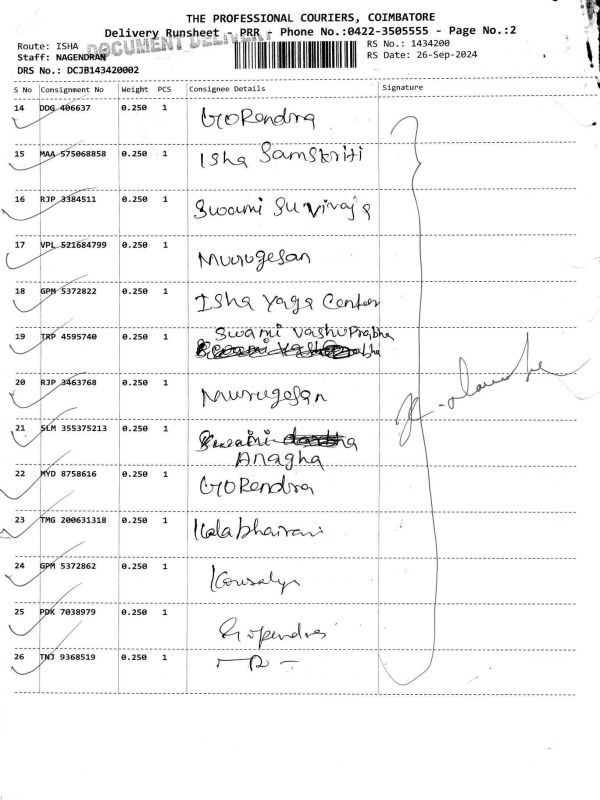 THE PROFESSIONAL COURIERS, COIMBATORE
Delivery Runsheet - PRR - Phone No.:0422-3505555 - Page No.:2
Route: ISHA
DOCUMENT DELIVERY
RS No.: 1434200
Staff: NAGENDRAN
RS Date: 26-Sep-2024
DRS No.: DCJB143420002
S No Consignment No Weight PCS Consignee Details Signature
14 DDG 406637 0.250 1 GORendra
15 MAA 575068858 0.250 1 Isha Samskriti
16 RJP 3384511 0.250 1 Swami
17 VPL 521684799 0.250 1 Murugesan
18 GPM 5372822 0.250 1 Isha Yaga Center
19 TRP 4595740 0.250 1 Swami VashuPrabha
20 RJP 3463768 0.250 1 Murugesan
21 SLM 355375213 0.250 1 Swami
Anagha
22 MYD 8758616 0.250 1 GORendra
23 TMG 200631318 0.250 1 Kalabhairavi
24 GPM 5372862 0.250 1 Kousalya
25 PDK 7038979 0.250 1
26 TNJ 9368519 0.250 1